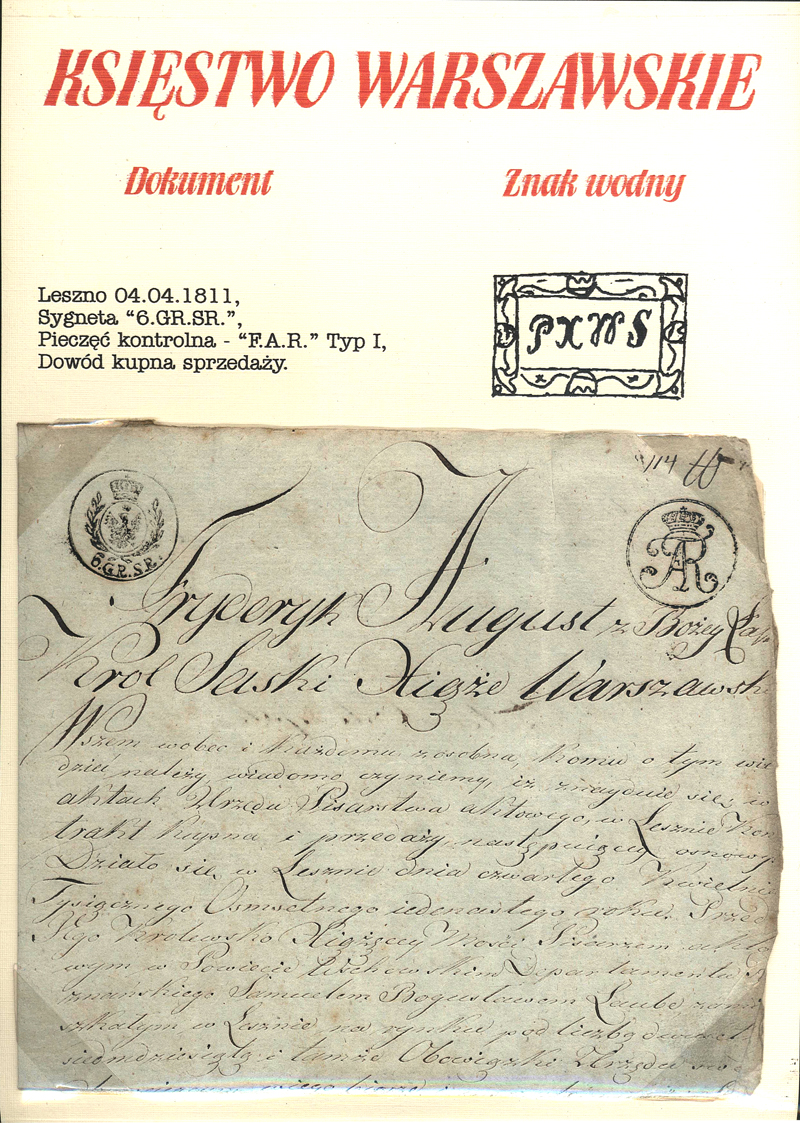 KSIĘSTWO WARSZAWSKIE
Dokument
Znak wodny
Leszno 04.04.1811,
Sygneta “6.GR.SR.”,
Pieczęć kontrolna - “F.A.R.” Typ I,
Dowód kupna sprzedaży.
PXWS
114
6.GR.SR.
FAR
Fryderyk August z Bożey
Krol Saski Xiąże Warszawski
Wszem wobec i każdemu zosobna, komu o tym wie
dzieć należy, wiadomo czyniemy, iż znayduie się w
aktach Urzędu Pisarstwa aktowego, w Lesznie Kon
trakt kupna i przedaży następuiącey osnowy.
Działo się w Lesznie dnia czwartego Kwietnia
Tysiącznego Osmsetnego iedenastego roku. Przed
Jego Krolewsko Xiążęcey Mości Pisarzem akto
wym w Powiecie Departamentu
znańskiego Samuelem Bogusławem Laube zamie
szkałym w Lesznie na rynku pod liczbą
siedmdziesiątą i tamże Obowiązki Urzędu